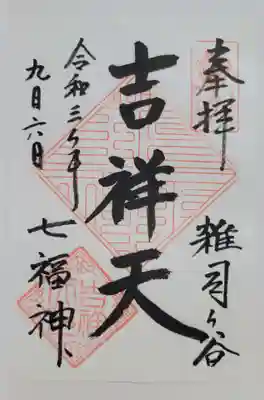 奉拝
雑司ヶ谷
吉祥天
七福神
令和三ヶ年
九月六日